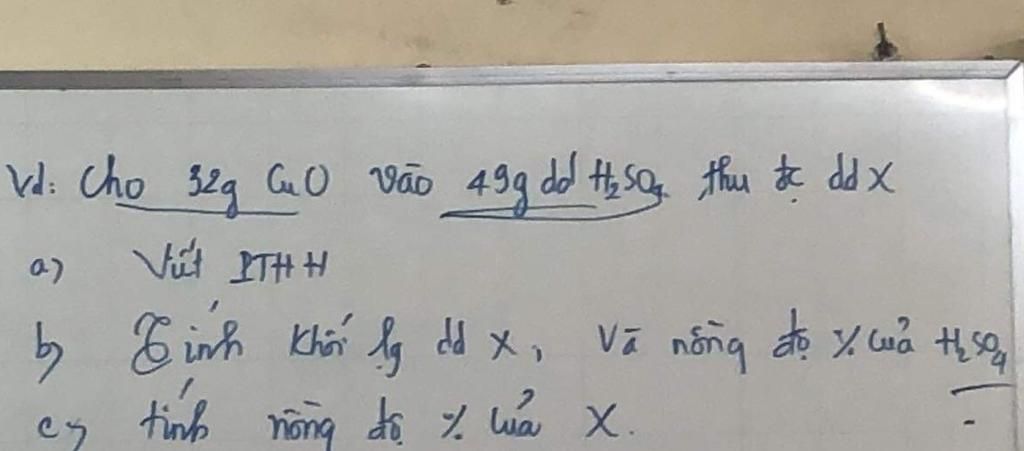 Vd: Cho 32g CuO vào 49g dd H₂SO₄ thu đc dd X
a) Viết PTHH
b) Tính khối lg dd X, Và nồng độ % của H₂SO₄
c) tính nồng độ % của X.